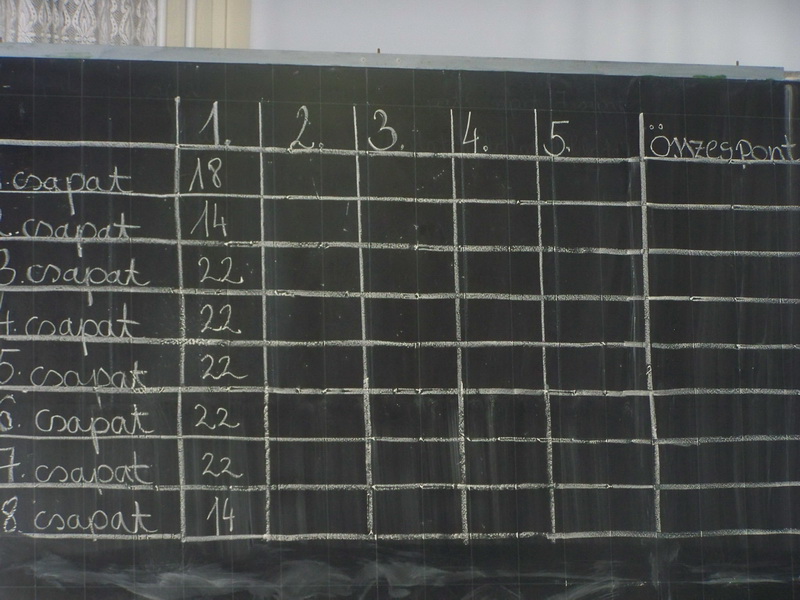 1. 2. 3. 4. 5. Összespont
1.csapat 18
2.csapat 14
3.csapat 22
4.csapat 22
5.csapat 22
6.csapat 22
7.csapat 22
8 csapat 14